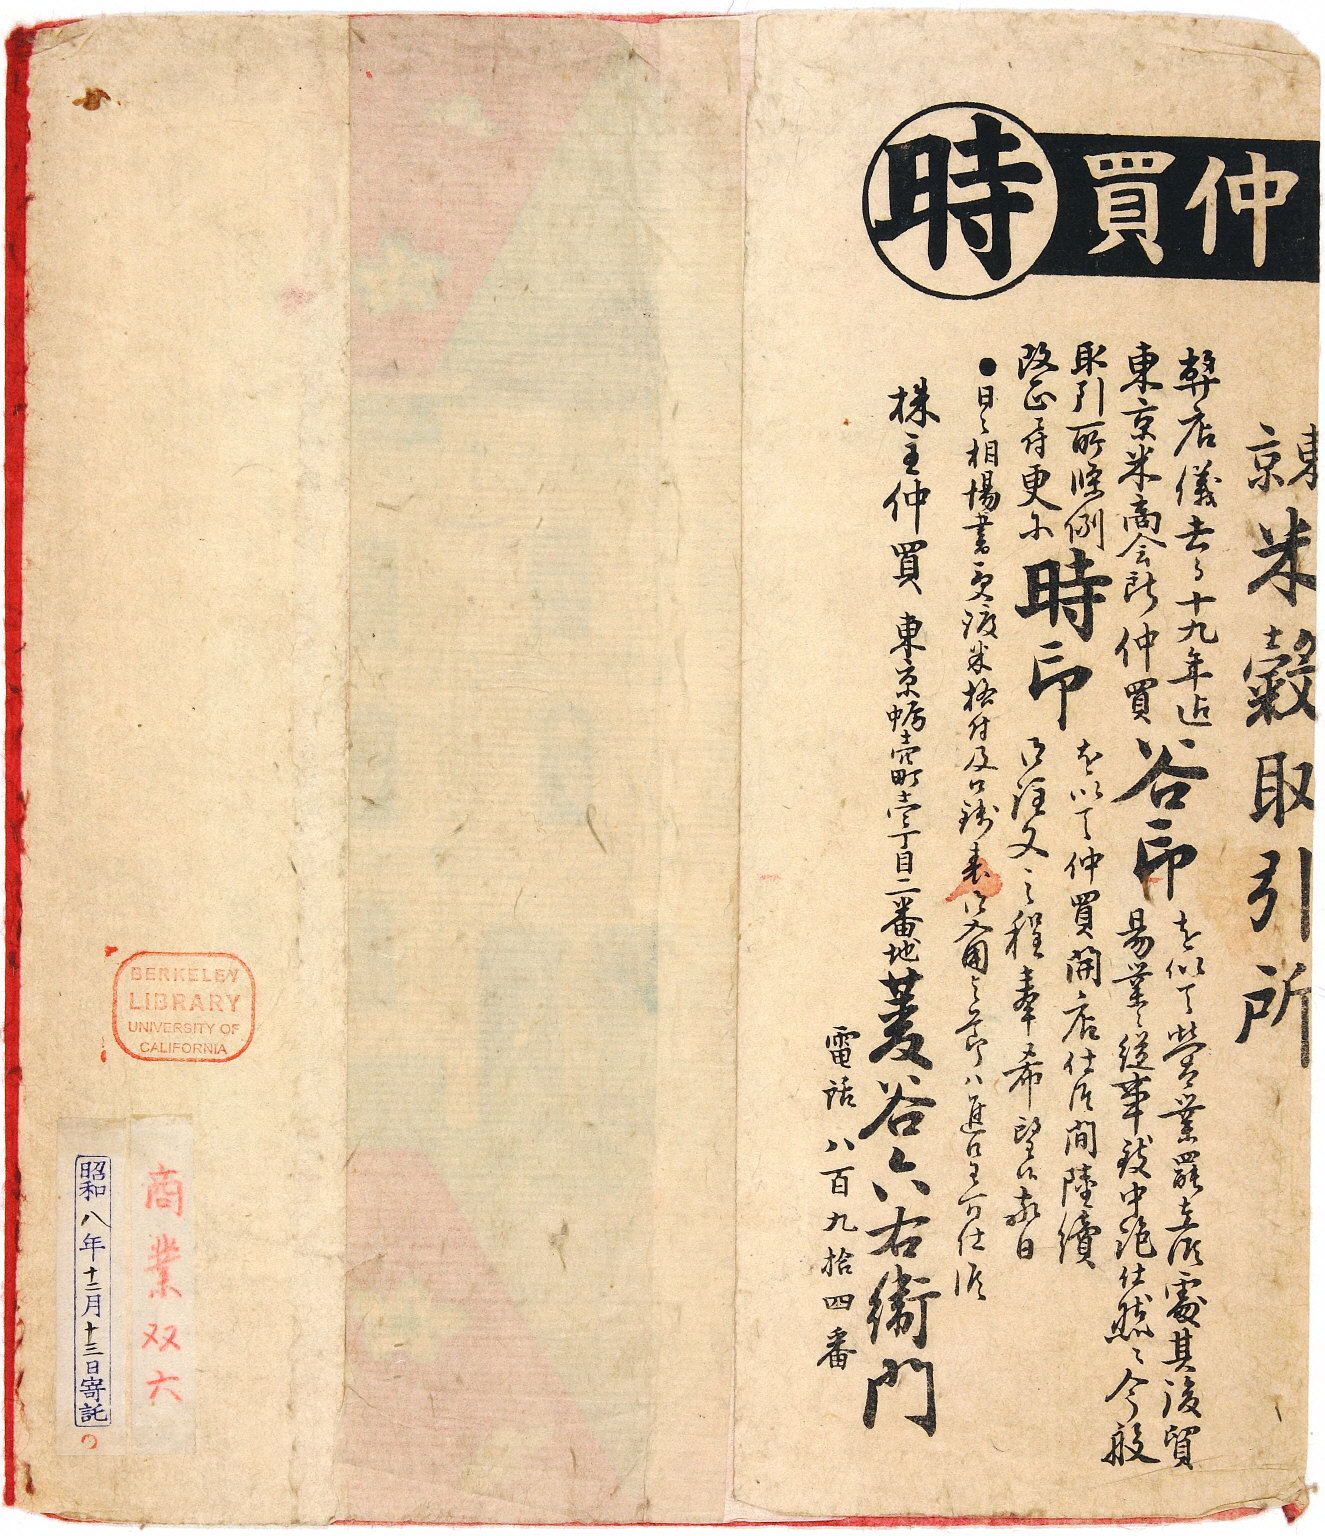 仲買
時
東京米穀取引所
弊店儀去る十九年迄谷印を以て營業罷在候處其後貿
東京米商会所仲買易業ニ從事致中絶仕候然ニ今般
取引所條例時印を以て仲買開店仕候間陸續
改正ニ付更に御注文之程奉希望候敬白
●日々相場書受渡米格付及口錢表御入用之節ハ進呈可仕候
株主仲買 東京蛎壳町壱丁目二番地 菱谷六右衞門
電話 八百九拾四番
BERKELEY
LIBRARY
UNIVERSITY OF
CALIFORNIA
商業双六
昭和八年十二月十三日寄託